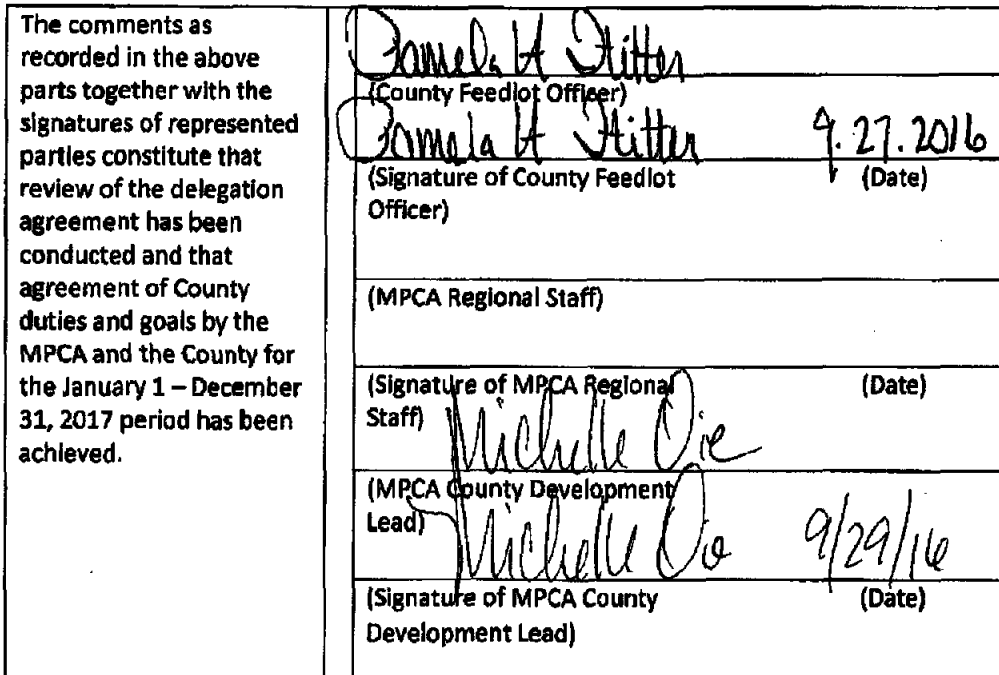 The comments as
recorded in the above
parts together with the
signatures of represented
parties constitute that
review of the delegation
agreement has been
conducted and that
agreement of County
duties and goals by the
MPCA and the County for
the January 1 – December
31, 2017 period has been
achieved.
Pamela H
(County Feedlot Officer)
Pamela H 9.27.2016
(Signature of County Feedlot (Date)
Officer)
(MPCA Regional Staff)
(Signature of MPCA Regional (Date)
Staff)
Michelle Oie
(MPCA County Development
Lead)
Michelle Oie 9/29/16
(Signature of MPCA County (Date)
Development Lead)